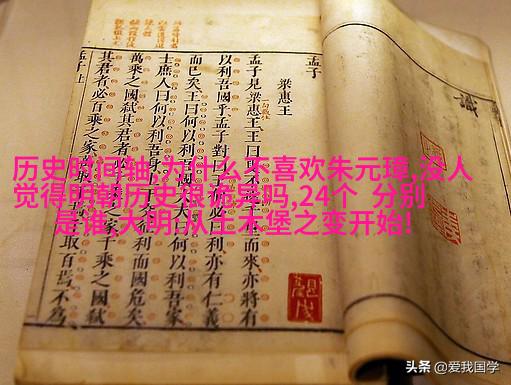 历史时间轴,为什么不喜欢朱元璋,没人
觉得明朝历史很诡异吗,24个 分别
是谁,大明:从土木堡之变开始!
孟子
梁惠王
孟子見梁惠王王曰
而來亦將有
以利吾國乎孟子對曰
亦有仁義
而已矣王曰何以利吾
以利吾家
士庶人曰何以利吾
利而國危矣
萬乘之國弒其君者
千乘之國弒
其君者必百乘之家
不為
孟子上
識
头条 @爱我国学